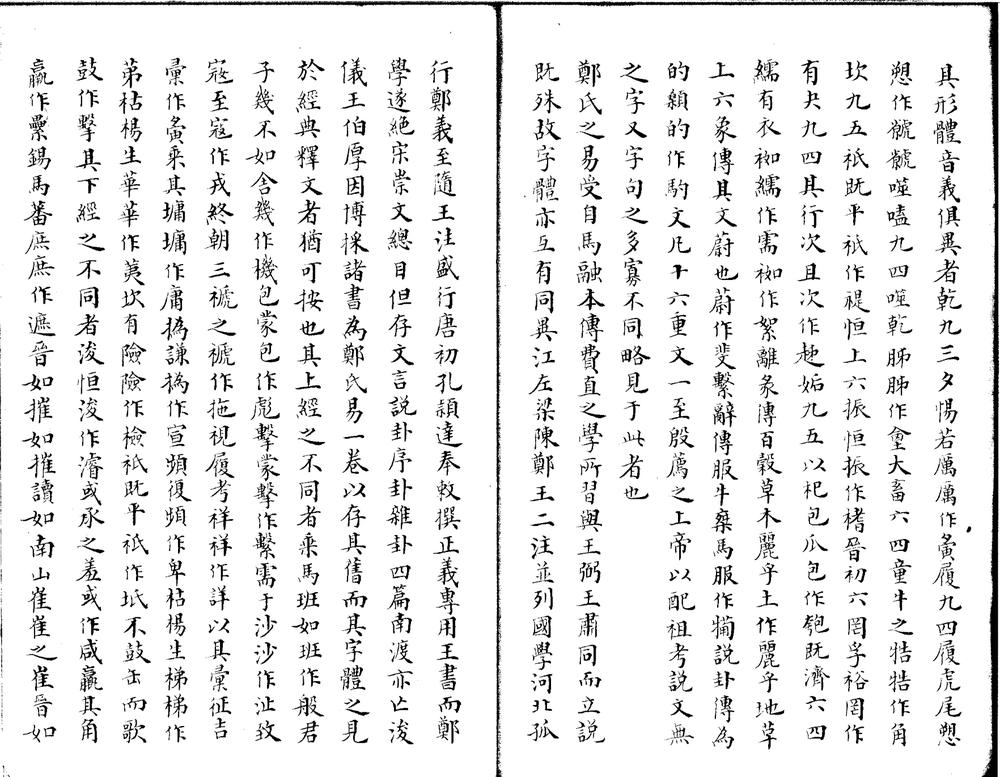 具形體音義俱異者乾九三夕惕若厲厲作夤履九四履虎尾愬
愬作虩虩噬嗑九四噬乾胏胏作𠧙大畜六四童牛之牿牿作角
坎九五祇既平祇作禔恒上六振恒振作榰晉初六罔孚裕罔作
有夬九四其行次且次作趑姤九五以杞包瓜包作匏既濟六四
繻有衣袽繻作需袽作絮離彖傳百穀草木麗乎土作麗乎地革
上六象傳其文蔚也蔚作斐繫辭傳服牛乘馬服作犕説卦傳為
的顙的作馰文凡十六重文一至殷薦之上帝以配祖考説文無
之字又字句之多寡不同略見于此者也
鄭氏之易受自馬融本傳費直之學所習與王弼王肅同而立説
既殊故字體亦互有同異江左梁陳鄭王二注並列國學河北孤
行鄭義至隨王注盛行唐初孔穎達奉敕撰正義專用王書而鄭
學遂絕宋崇文總目但存文言説卦序卦雜卦四篇南渡亦亡浚
儀王伯厚因博採諸書為鄭氏易一卷以存其舊而其字體之見
於經典釋文者猶可按也其上經之不同者乘馬班如班作般君
子幾不如舍幾作機包蒙包作彪擊蒙擊作繫需于沙沙作沚致
寇至寇作戎終朝三褫之褫作拕視履考祥祥作詳以其彙征吉
彙作夤乘其墉墉作庸撝謙撝作宣頻復頻作卑枯楊生梯梯作
荑枯楊生華華作荑坎有險險作檢祇既平祇作坻不鼓缶而歌
鼓作擊其下經之不同者浚恒浚作濬或承之羞或作咸羸其角
羸作纍錫馬蕃庶庶作遮晉如摧如摧讀如南山崔崔之崔晉如